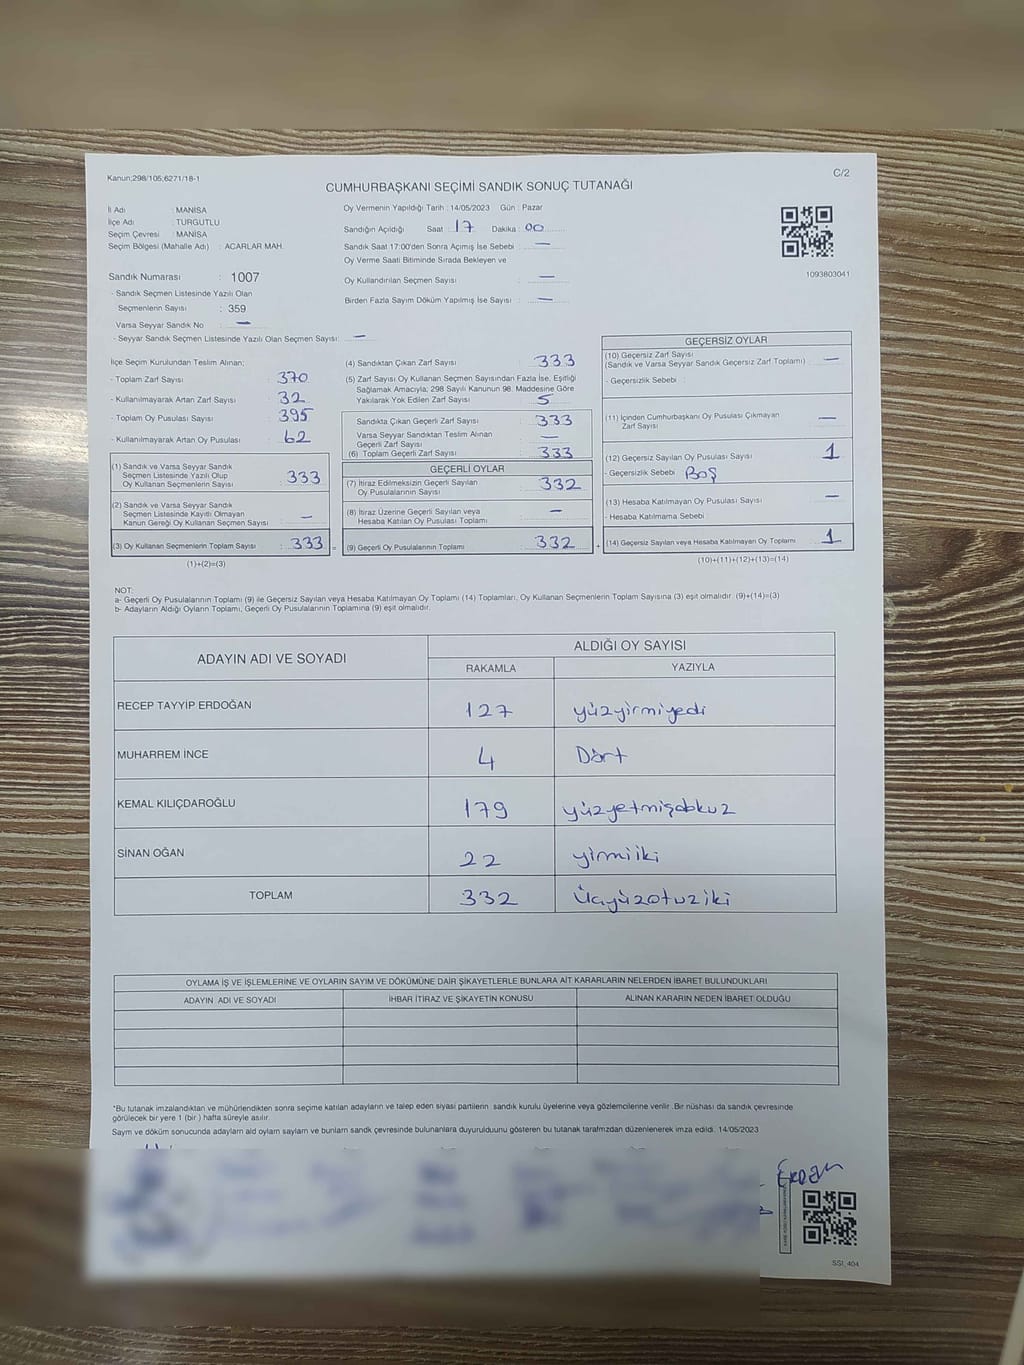 Kanun;298/105;6271/18-1
C/2
CUMHURBAŞKANI SEÇİMİ SANDIK SONUÇ TUTANAĞI
İl Adı : MANİSA
İlçe Adı : TURGUTLU
Seçim Çevresi : MANİSA
Seçim Bölgesi (Mahalle Adı) : ACARLAR MAH.
Sandık Numarası : 1007
- Sandık Seçmen Listesinde Yazılı Olan
Seçmenlerin Sayısı : 359
Varsa Seyyar Sandık No : —
- Seyyar Sandık Seçmen Listesinde Yazılı Olan Seçmen Sayısı: —
Oy Vermenin Yapıldığı Tarih : 14/05/2023 Gün : Pazar
Sandığın Açıldığı Saat : 17 Dakika : 00
Sandık Saat 17:00'den Sonra Açımış İse Sebebi : —
Oy Verme Saati Bitiminde Sırada Bekleyen ve
Oy Kullandırılan Seçmen Sayısı : —
Birden Fazla Sayım Döküm Yapılmış İse Sayısı : —
1093803041
İlçe Seçim Kurulundan Teslim Alınan;
- Toplam Zarf Sayısı : 370
- Kullanılmayarak Artan Zarf Sayısı : 32
- Toplam Oy Pusulası Sayısı : 395
- Kullanılmayarak Artan Oy Pusulası : 62
(1) Sandık ve Varsa Seyyar Sandık
Seçmen Listesinde Yazılı Olup
Oy Kullanan Seçmenlerin Sayısı : 333
(2) Sandık ve Varsa Seyyar Sandık
Seçmen Listesinde Kayıtlı Olmayan
Kanun Gereği Oy Kullanan Seçmen Sayısı : —
(3) Oy Kullanan Seçmenlerin Toplam Sayısı : 333
(1)+(2)=(3)
(4) Sandıktan Çıkan Zarf Sayısı : 333
(5) Zarf Sayısı Oy Kullanan Seçmen Sayısından Fazla İse, Eşitliği
Sağlamak Amacıyla; 298 Sayılı Kanunun 98. Maddesine Göre
Yakılarak Yok Edilen Zarf Sayısı : 5
Sandıkta Çıkan Geçerli Zarf Sayısı : 333
Varsa Seyyar Sandıktan Teslim Alınan
Geçerli Zarf Sayısı : —
(6) Toplam Geçerli Zarf Sayısı : 333
GEÇERLİ OYLAR
(7) İtiraz Edilmeksizin Geçerli Sayılan
Oy Pusulalarının Sayısı : 332
(8) İtiraz Üzerine Geçerli Sayılan veya
Hesaba Katılan Oy Pusulası Toplamı : —
= (9) Geçerli Oy Pusulalarının Toplamı : 332
GEÇERSİZ OYLAR
(10) Geçersiz Zarf Sayısı
(Sandık ve Varsa Seyyar Sandık Geçersiz Zarf Toplamı) : —
- Geçersizlik Sebebi :
(11) İçinden Cumhurbaşkanı Oy Pusulası Çıkmayan
Zarf Sayısı : —
(12) Geçersiz Sayılan Oy Pusulası Sayısı : 1
- Geçersizlik Sebebi : BOŞ
(13) Hesaba Katılmayan Oy Pusulası Sayısı : —
- Hesaba Katılmama Sebebi :
+ (14) Geçersiz Sayılan veya Hesaba Katılmayan Oy Toplamı : 1
(10)+(11)+(12)+(13)=(14)
NOT:
a- Geçerli Oy Pusulalarının Toplamı (9) ile Geçersiz Sayılan veya Hesaba Katılmayan Oy Toplamı (14) Toplamları, Oy Kullanan Seçmenlerin Toplam Sayısına (3) eşit olmalıdır. (9)+(14)=(3)
b- Adayların Aldığı Oyların Toplamı, Geçerli Oy Pusulalarının Toplamına (9) eşit olmalıdır.
ADAYIN ADI VE SOYADI ALDIĞI OY SAYISI
RAKAMLA YAZIYLA
RECEP TAYYİP ERDOĞAN 127 yüzyirmiyedi
MUHARREM İNCE 4 Dört
KEMAL KILIÇDAROĞLU 179 yüzyetmişdokuz
SİNAN OĞAN 22 yirmiiki
TOPLAM 332 Üçyüzotuziki
OYLAMA İŞ VE İŞLEMLERİNE VE OYLARIN SAYIM VE DÖKÜMÜNE DAİR ŞİKAYETLERLE BUNLARA AİT KARARLARIN NELERDEN İBARET BULUNDUKLARI
ADAYIN ADI VE SOYADI İHBAR İTİRAZ VE ŞİKAYETİN KONUSU ALINAN KARARIN NEDEN İBARET OLDUĞU
*Bu tutanak imzalandıktan ve mühürlendikten sonra seçime katılan adayların ve talep eden siyasi partilerin sandık kurulu üyelerine veya gözlemcilerine verilir. Bir nüshası da sandık çevresinde
görülecek bir yere 1 (bir ) hafta süreyle asılır.
Sayım ve döküm sonucunda adayların ald oyların sayların ve bunların sandk çevresinde bulunanlara duyurulduunu gösteren bu tutanak tarafmzdan düzenlenerek imza edildi. 14/05/2023
SSI, 404